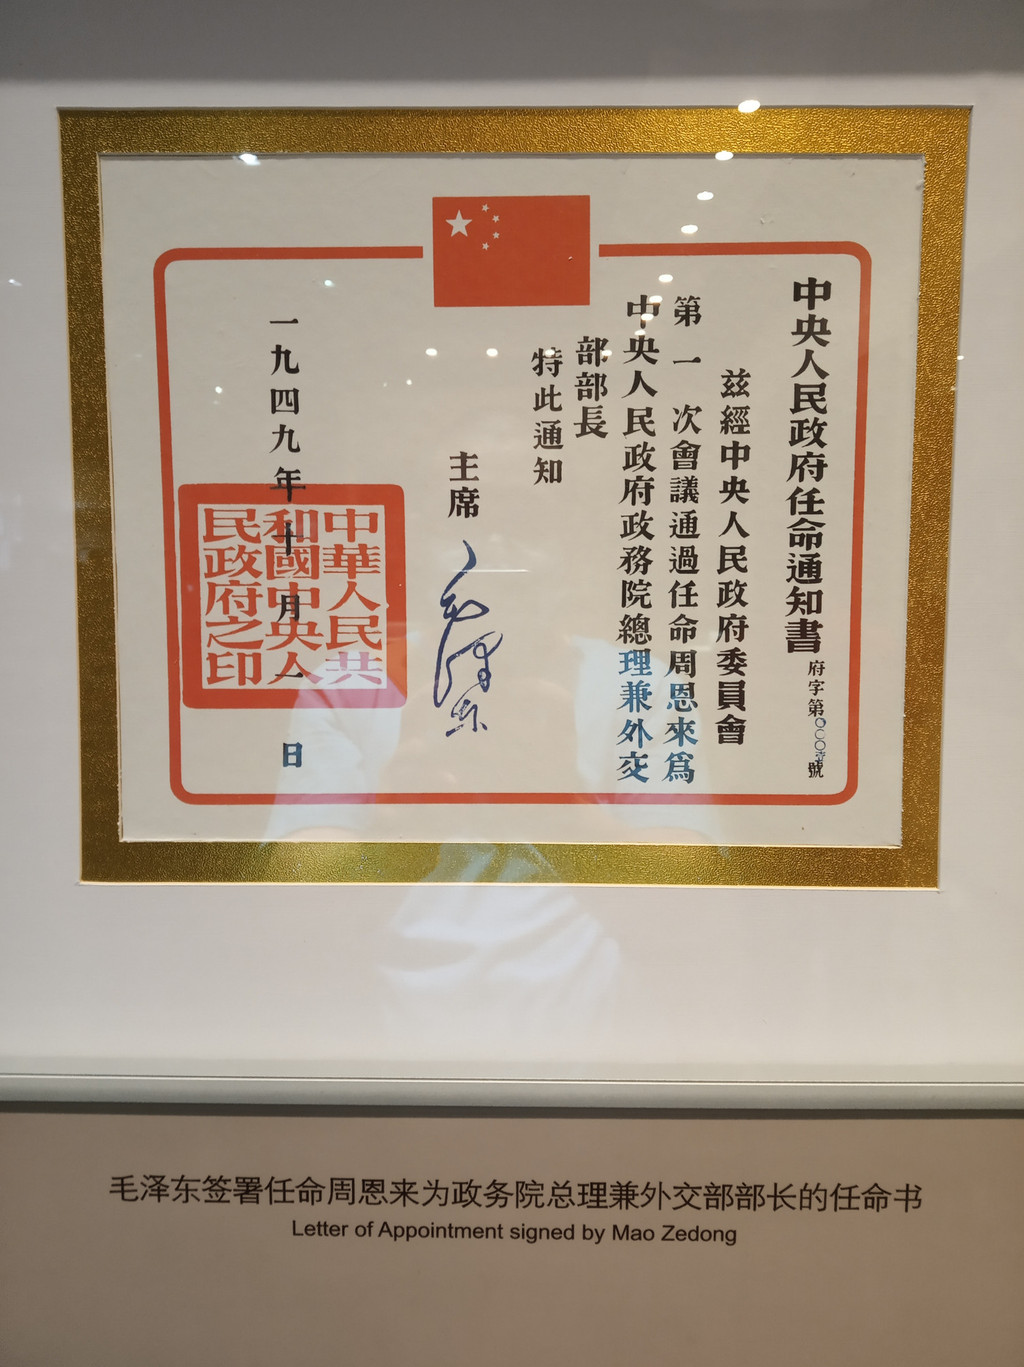 中央人民政府任命通知書
府字第〇〇〇壹號
兹經中央人民政府委員會
第一次會議通過任命周恩來為
中央人民政府政務院總理兼外交
部部長
特此通知
主席
毛澤東
一九四九年十月一日
中華人民共
和國中央人
民政府之印
毛泽东签署任命周恩来为政务院总理兼外交部部长的任命书
Letter of Appointment signed by Mao Zedong